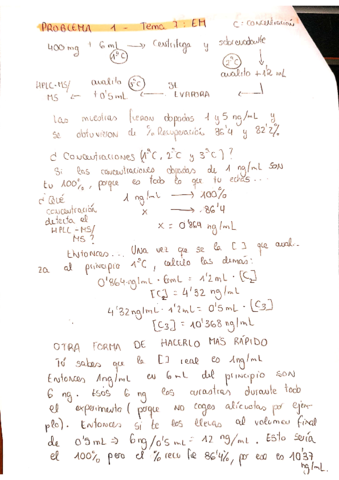 PROBLEMA 1 - Tema 7: EM
C: concentración
400 mg + 6 mL → Centrifuga y sobrenadante
1ºC
2ºC
analito + 1'2 mL
HPLC-MS/MS ← analito + 0'5 mL ← SE EVAPORA
3ºC
Las muestras fueron dopadas 1 y 5 ng/mL y
se obtuvieron de % Recuperación 86'4 y 82'2%
¿Concentraciones (1ºC, 2ºC y 3ºC)?
Si las concentraciones dopadas de 1 ng/mL son
tu 100%, porque es todo lo que tu echas...
¿QUÉ concentración detecta el HPLC-MS/MS?
1 ng/mL → 100%
x → 86'4
x = 0'864 ng/mL
Entonces... Una vez que se la [ ] que
al principio 1ºC, calculo las demás:
0'864 ng/mL · 6mL = 1'2 mL · [C2]
[C2] = 4'32 ng/mL
4'32 ng/mL · 1'2mL = 0'5 mL · [C3]
[C3] = 10'368 ng/mL
OTRA FORMA DE HACERLO MÁS RÁPIDO
Tú sabes que la [ ] real es 1ng/mL
Entonces 1ng/mL en 6 mL del principio son
6 ng. Esos 6 ng los arrastras durante todo
el experimento (porque no coges alícuotas por ejem-
plo). Entonces si te los llevas al volumen final
de 0'5 mL ⇒ 6ng/0'5 mL = 12 ng/mL. Esto sería
el 100% pero el % recu fue 86'4%, por eso es 10'37
ng/mL.